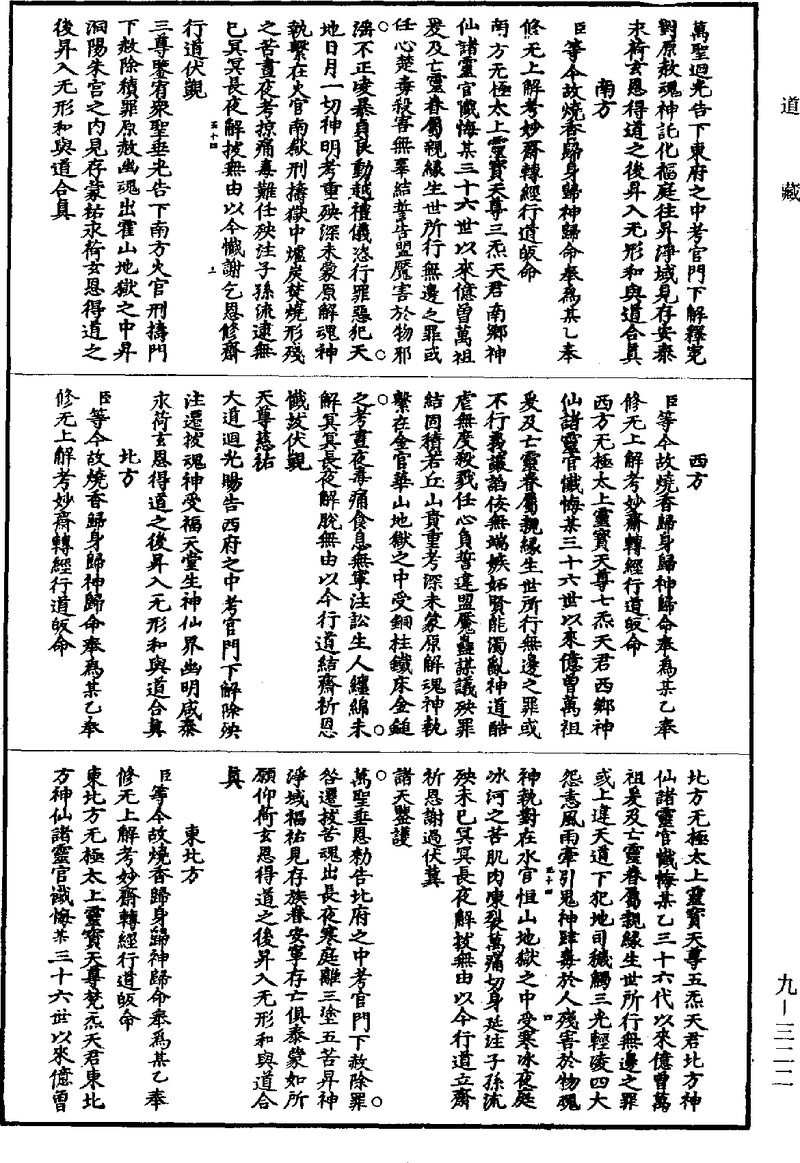 道藏
萬聖迴光告下東府之中考官門下解釋冤
對原赦魂神託化福庭往昇淨域見存安泰
求荷玄恩得道之後昇入无形和與道合真
南方
臣等今故燒香歸身歸神歸命奉為某乙奉
修无上解考妙齋轉經行道皈命
南方无極太上靈寶天尊三炁天君南鄉神
仙諸靈官懺悔某三十六世以來億曾萬祖
爰及亡靈眷屬親緣生世所行無邊之罪或
任心楚毒殺害無辜結誓告盟魘害於物邪
婬不正凌暴貞良動越禮儀恣行罪惡犯天
地日月一切神明考重殃深未蒙原解魂神
執繫在火官南嶽刑擣獄中爐炭焚燒形殘
之苦晝夜考掠痛毒難任殃注子孫流逮無
已冥冥長夜解拔無由以今懺謝乞恩修齋
五十四
上
行道伏覬
三尊鑒宥眾聖垂光告下南方火官刑擣門
下赦除積罪原赦幽魂出霍山地獄之中昇
洞陽朱宮之內見存蒙祐求荷玄恩得道之
後昇入无形和與道合真
西方
臣等今故燒香歸身歸神歸命奉為某乙奉
修无上解考妙齋轉經行道皈命
西方无極太上靈寶天尊七炁天君西鄉神
仙諸靈官懺悔某三十六世以來億曾萬祖
爰及亡靈眷屬親緣生世所行無邊之罪或
不行義讓諂佞無端嫉妬賢能濁亂神道酷
虐無度殺戮任心負誓違盟魘蠱謀議殃罪
結固積若丘山責重考深未蒙原解魂神執
繫在金官華山地獄之中受銅柱鐵床金鎚
之考晝夜毒痛食息無寧注訟生人纏綿未
解冥冥長夜解脫無由以今行道結齋祈恩
懺拔伏覬
天尊慈祐
大道迴光賜告西府之中考官門下解除殃
注還拔魂神受福天堂生神仙界幽明咸泰
求荷玄恩得道之後昇入无形和與道合真
北方
臣等今故燒香歸身歸神歸命奉為某乙奉
修无上解考妙齋轉經行道皈命
北方无極太上靈寶天尊五炁天君北方神
仙諸靈官懺悔某乙三十六代以來億曾萬
祖爰及亡靈眷屬親緣生世所行無邊之罪
或上違天道下犯地司穢觸三光輕凌四大
怨恚風雨牽引鬼神肆毒於人殘害於物魂
五十四
四
神執對在水官恒山地獄之中受寒冰夜庭
冰河之苦肌肉凍裂萬痛切身延注子孫流
殃未已冥冥長夜解拔無由以今行道立齋
祈恩謝過伏冀
諸天鑒護
萬聖垂恩勑告北府之中考官門下赦除罪
咎還拔苦魂出長夜寒庭離三塗五苦昇神
淨域福祐見存族眷安寧存亡俱泰蒙如所
願仰荷玄恩得道之後昇入无形和與道合
真
東北方
臣等今故燒香歸身歸神歸命奉為某乙奉
修无上解考妙齋轉經行道皈命
東北方无極太上靈寶天尊梵炁天君東北
方神仙諸靈官懺悔某三十六世以來億曾
九—三二二